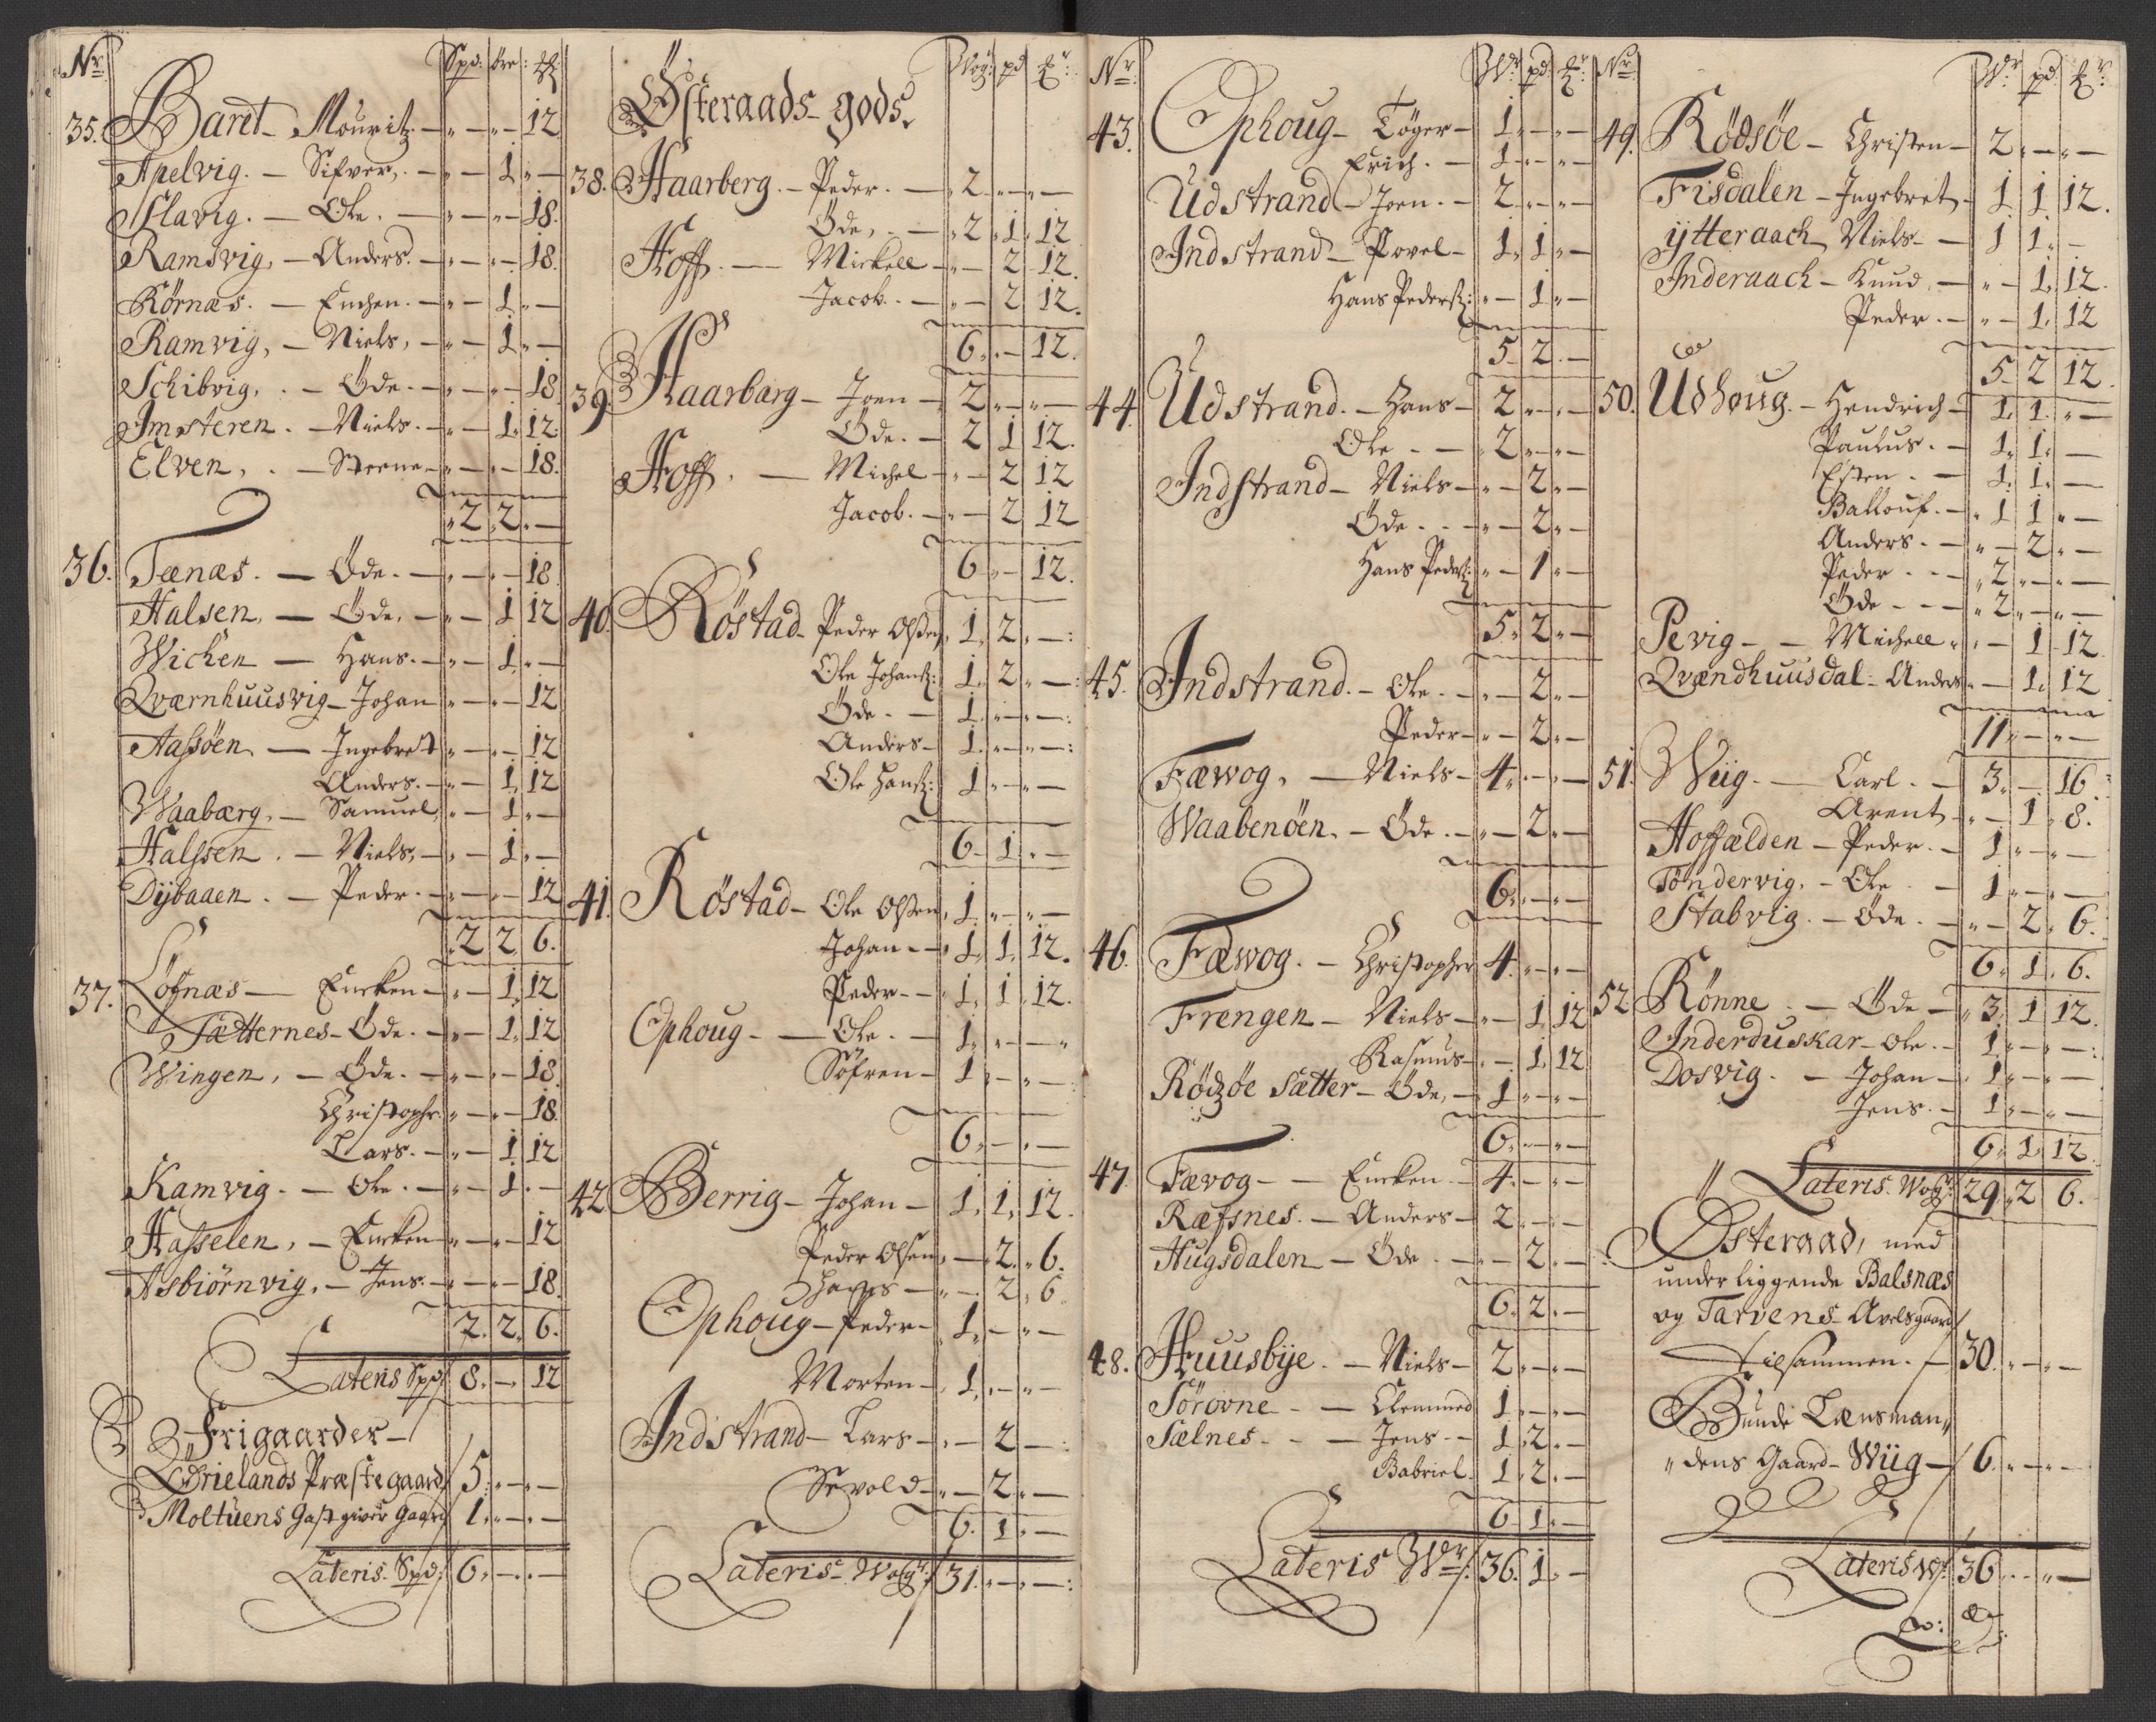 Nr. Spd: öre: #
35. Baret - Mouritz - " - " - 12
Apelvig. - Sifver. - " - 1 " -
Slavig. - Ole. - " - " - 18.
Ramsvig, - Anders. - " - " - 18.
Körnæs. - Enchen. - " - 1 " -
Ramvig, - Niels, - " - 1 " -
Schibvig, - Öde. - " - " - 18
Imsteren. - Niels. - " - 1. 12
Elven, - Steene - " - " - 18.
" 2. 2. -
36. Tænæs. - Öde. - " - " - 18
Halsen, - Öde, - " - 1 12
Wichen - Hans. - " - 1. " -
Qværnhuusvig - Johan " - " - 12
Aassöen - Ingebret " - " - 12
Anders. - " - 1. 12
Waabærg. - Samuel, " - 1. -
Halssen. - Niels, - " - 1. " -
Dÿbaaen. - Peder. - " - " - 12
. 2 2. 6.
37. Löfnæs - Encken - " - 1. 12
Sætternes - Öde. - " - 1. 12
Wingen, - Öde. - " - " - 18
Christophr. " - " - 18.
Lars. - " - 1 12
Kamvig. - Ole. - " - 1. " -
Hasselen, - Encken - " - " - 12
Asbiörnvig, - Jens. - " - " - 18.
2. 2. 6.
Lateris Spd/ 8. - 12
Frigaarder -
Ørielands Præstegaard/ 5. " - " -
Moltuens Gastgiver Gaard/ 1. " - " -
Lateris. Spd: 6. - " -
Österaads gods. Wog: pd #:
38. Haarberg. - Peder. - " 2 - " -
Öde, - " 2. 1. 12
Hoff. - Mickell - " - 2 12.
Jacob. - " - 2 12.
6. - 12.
39. Haarbarg - Joen - 2 " - " -
Öde. - 2 1 12.
Hoff. - Michel - " - 2 12
Jacob. - " - 2 12
6 " - 12.
40. Röstad - Peder Olssen, 1. 2. " - :
Ole Johans: 1. 2 " - :
Öde. - 1. " - " - :
Anders - 1. " - " - :
Ole Hans: 1 " - " -
6. 1. " -
41. Röstad - Ole Olssen, 1. " - " -
Johan - " 1. 1. 12.
Peder - - 1. 1 12.
Ophoug - - Ole. - 1. " - "
Söfren - 1 " - " -
6. - " -
42 Berrig - Johan - 1. 1. 12.
Peder Olsen " - 2. 6.
Hans - " - 2. 6
Ophoug - Peder - 1. " - " -
Morten - . 1. " - " -
Indstrand - Lars - " - 2 - :
Sevold - " - 2 " -
6. 1 " -
Lateris Wogr/ 31. " - " - :
Nr. Wr. pd #r.
43. Ophoug - Töger - 1. " - " -
Erich. - 1 " - " -
Udstrand - Joen. - 2 " - " -
Indstrand - Povel - 1. 1. " -
Hans Peders: " - 1. -
5. 2. -
44. Udstrand. - Hans - 2 " - " -
Ole - - 2 " - " -
Indstrand - Niels - " - 2 " -
Öde - - " - 2 " -
Hans Peders: " - 1 " -
5. 2 " -
45. Indstrand. - Ole. - " - 2 " -
Peder - " - 2 " -
Fæwog, - Niels - 4 " - " -
Waabenöen, - Öde. - " - 2 " -
6. " - " -
46. Fæwog. - Christopher 4. " - " -
Frengen - Niels - " - 1 12
Rasmus - " - 1. 12
Rödzöe Sætter - Öde, - 1 " - " -
6. " - " -
47 Fævog - - Encken - 4. " - " -
Ræfsnes. - Anders - 2 " - " -
Hugsdalen - Öde. - " - 2. " -
6. 2. " -
48. Huusbÿe. - Niels - 2 " - " -
Sörovne - - Clemmed 1 " - " -
Sælnes - - - Jens - - 1. 2. " -
Gabriel. 1. 2. " -
6. 1 " -
Lateris Wr/ 36. 1. " -
Nr. Wr. pd: #r.
49. Rödsöe - Christen - 2 " - " -
Fisdalen - Ingebret - 1. 1. 12.
ÿtteraach - Niels - - 1 1. " -
Inderaach - Knud, - " - 1. 12.
Peder. - " - 1. 12
5. 2 12.
50. Udhoug. - Hendrich - 1. 1. " -
Paulus. - 1. 1. " -
Esten. - 1. 1. " -
Ballouf. - 1 1 " -
Anders. - " - 2. " -
Peder - - " 2 " - " -
Öde - - - " 2 " - " -
Pevig - - Michell " - 1 12
Qvændhuusdal - Anders " - 1. 12
11 " - " -
51. Wiig. - Carl. - 3. - 16.
Arent, - " - 1. 8.
Hoffælden - Peder. - 1 " - " -
Töndervig, - Ole. - 1 " - " -
Stabvig. - Öde. - " - 2. 6.
6. 1. 6.
52. Rönne. - Öde - " 3. 1 12.
Inderduskar - Ole. - 1. " - " - :
Dosvig. - Johan - 1 " - " -
Jens. - 1 " - " -
6. 1. 12.
" Lateris. Wogr. 29. 2 6.
Østeraad, med
underliggende Balsnæs
og Tarvens Avelsgaard/
tilsammen. - 30. " - " -
Bunde Lænsman,,
,,dens Gaard - Wiig - / 6. " - " -
Lateris Wr/ 36. " - " -